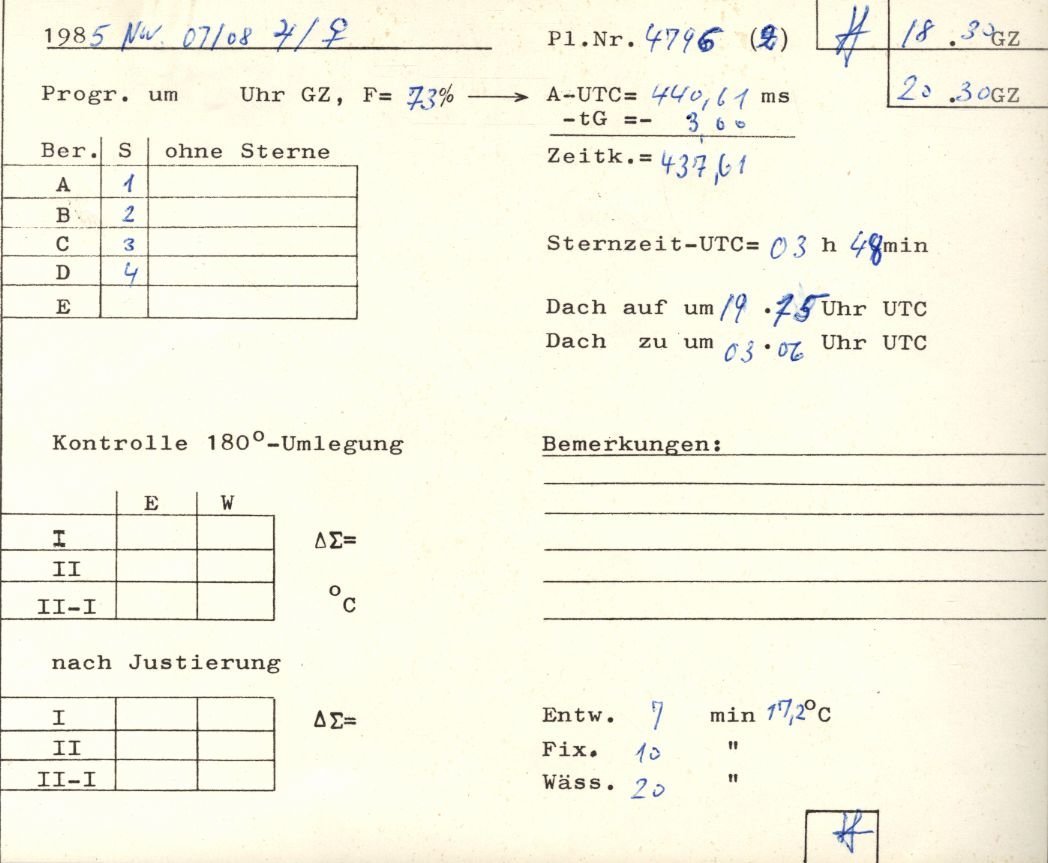 1985 Nov. 07/08 ♃/♀
Pl.Nr. 4796 (2)
18.30 GZ
20.30 GZ
Progr. um Uhr GZ, F= 73% → A-UTC= 440,61 ms
-tG =- 3,00
Zeitk.= 437,61
Ber. S ohne Sterne
A 1
B 2
C 3
D 4
E
Sternzeit-UTC= 03 h 48 min
Dach auf um 19 . Uhr UTC
Dach zu um 03.06 Uhr UTC
Kontrolle 180°-Umlegung
E W
I ΔΣ=
II
II-I °C
Bemerkungen:
nach Justierung
I ΔΣ=
II
II-I
Entw. 7 min 17,2°C
Fix. 10 "
Wäss. 20 "